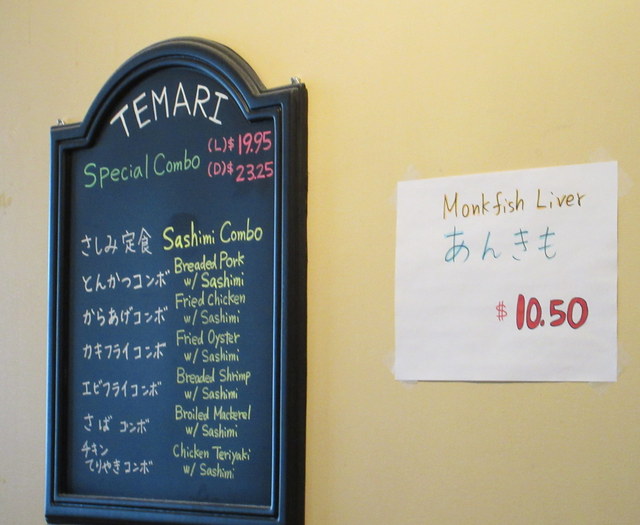 TEMARI
Special Combo (L)$ 19.95
(D)$ 23.25
さしみ定食 Sashimi Combo
とんかつコンボ Breaded Pork
w/ Sashimi
からあげコンボ Fried Chicken
w/ Sashimi
カキフライコンボ Fried Oyster
w/ Sashimi
エビフライコンボ Breaded Shrimp
w/ Sashimi
さば コンボ Broiled Mackerel
w/ Sashimi
チキン
てりやきコンボ Chicken Teriyaki
w/ Sashimi
Monkfish Liver
あんきも
$ 10.50